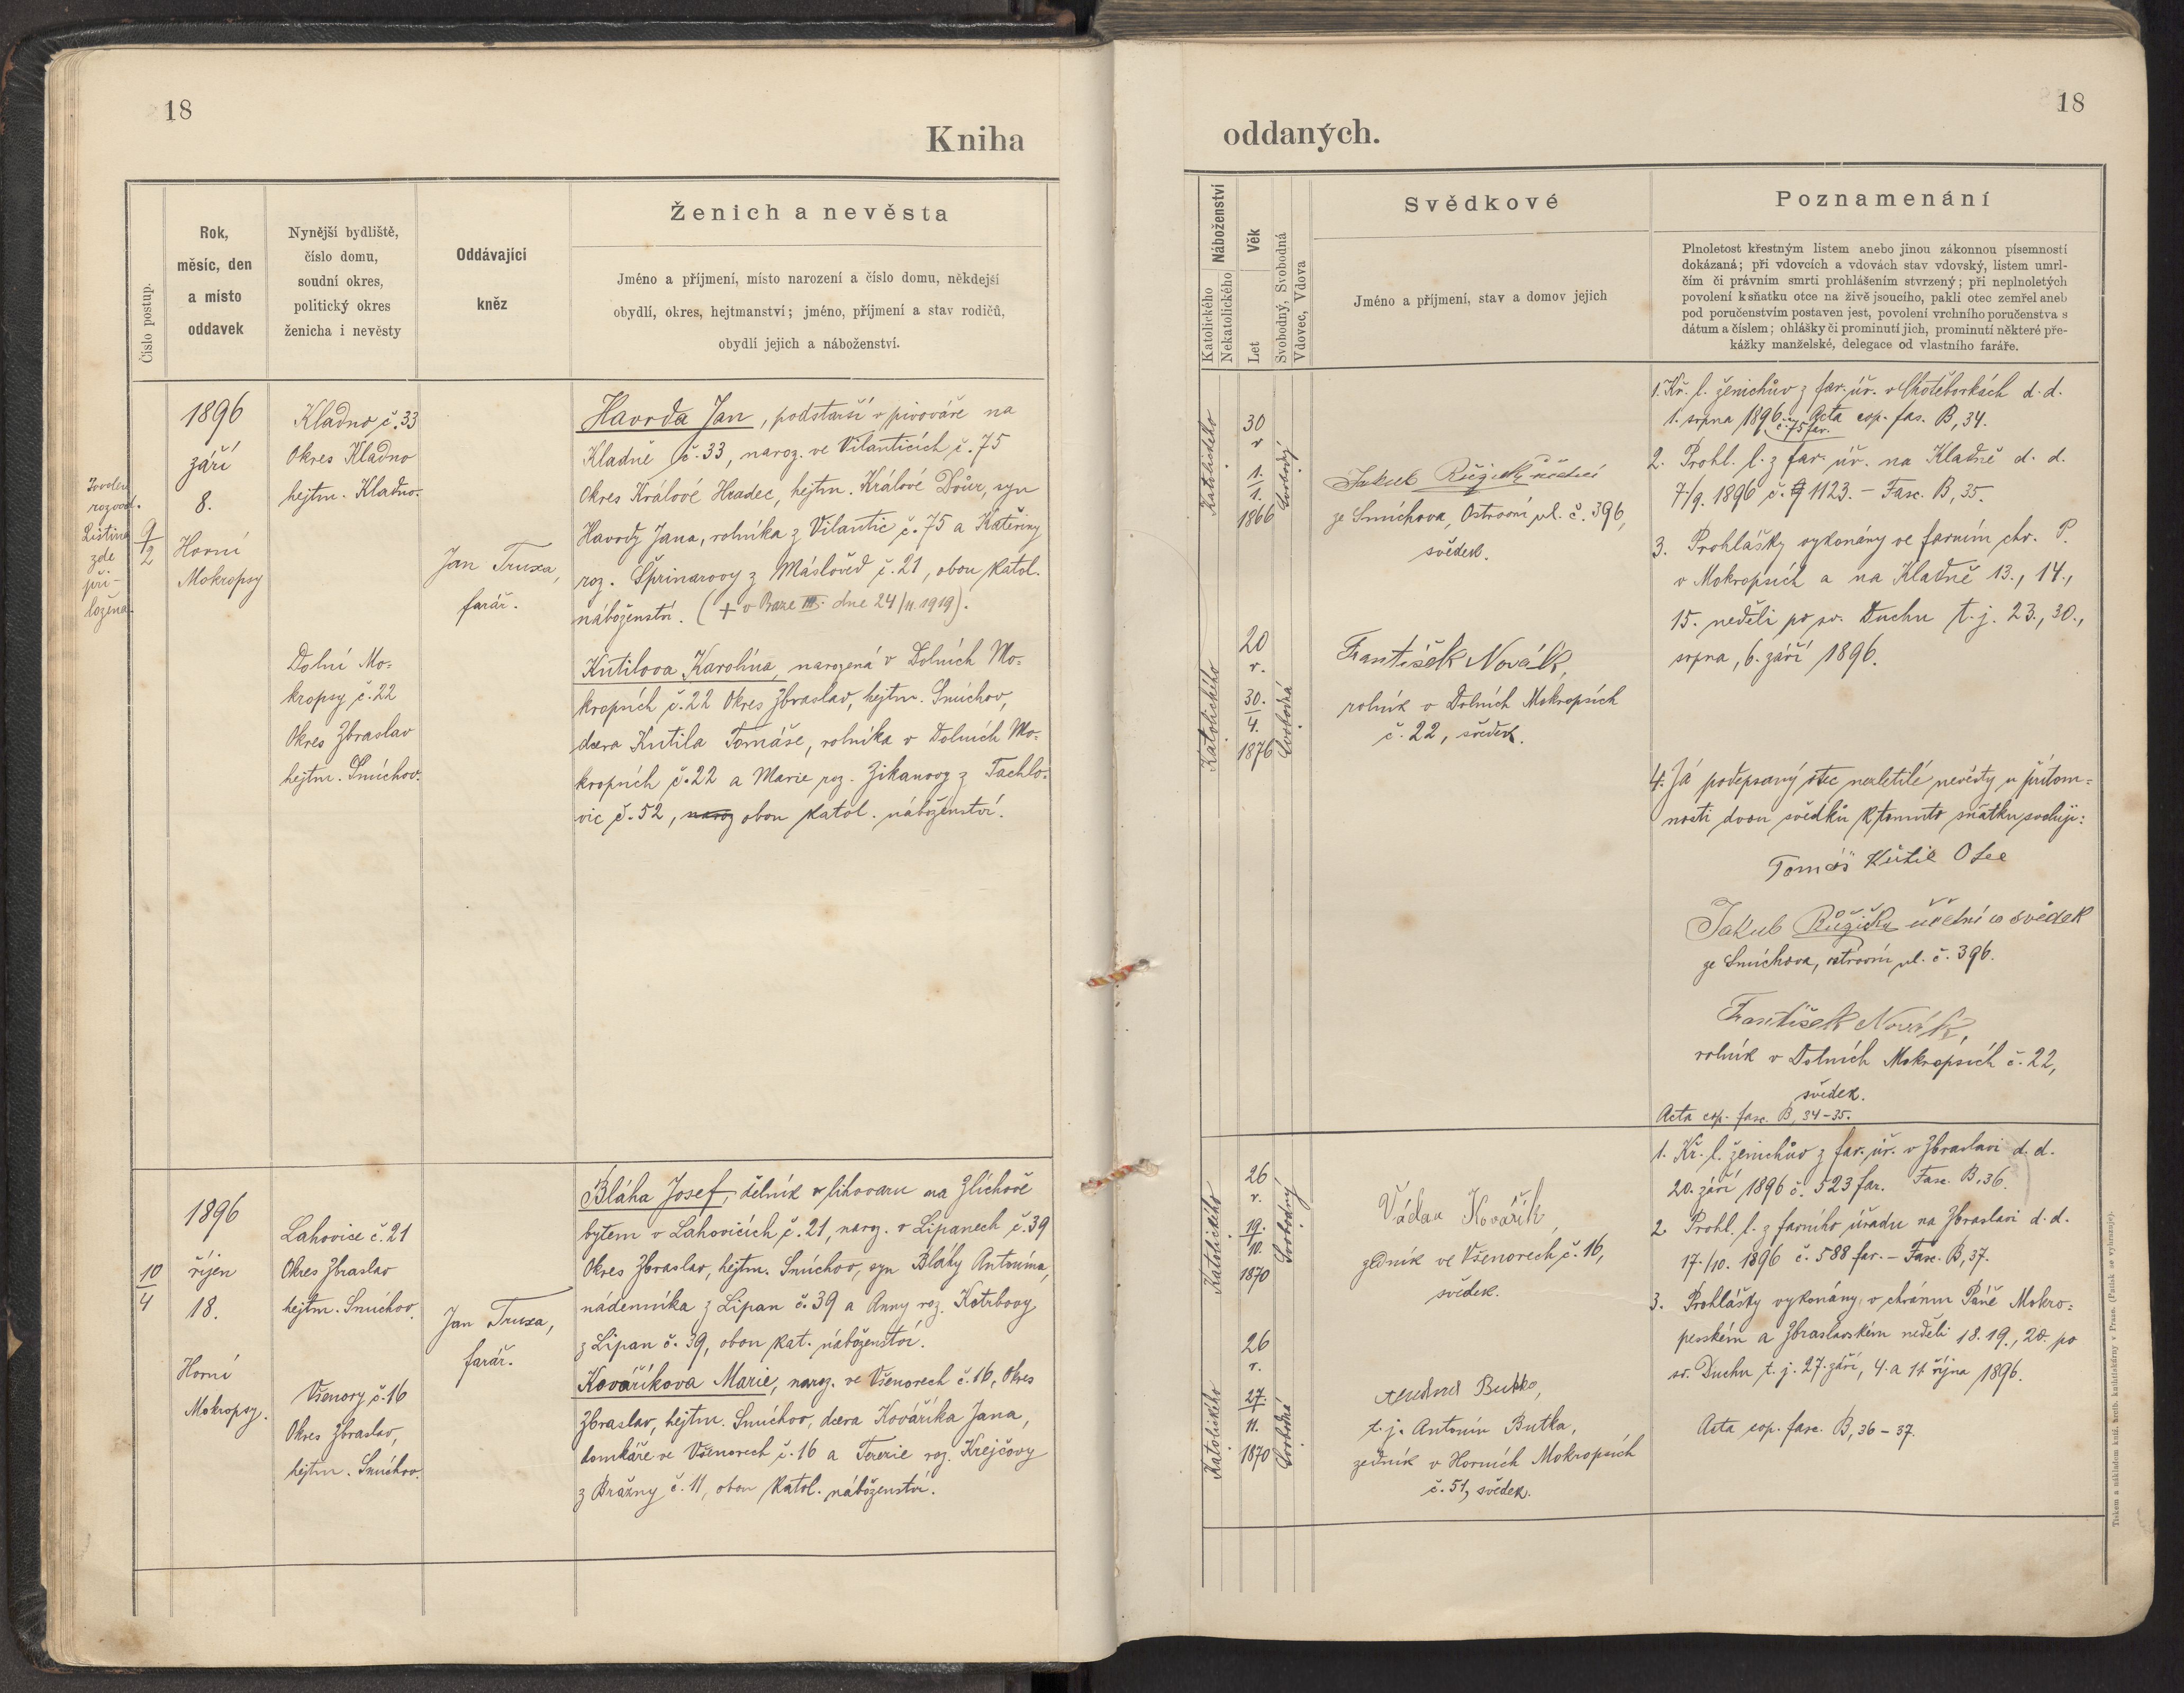 18
Kniha
Číslo postup.
Rok,
měsíc, den
a místo
oddavek
Nynější bydliště,
číslo domu,
soudní okres,
politický okres
ženicha i nevěsty
Oddávající
kněz
Ženich a nevěsta
Jméno a příjmení, místo narození a číslo domu, někdejší
obydlí, okres, hejtmanství; jméno, příjmení a stav rodičů,
obydlí jejich a náboženství.
rozvod.
Listina
zde
při-
ložena.
9
2
1896
září
8.
Horní
Mokropsy
Kladno č. 33
Okres Kladno
hejtm. Kladno.
Dolní Mo-
kropsy č. 22
Okres Zbraslav
hejtm. Smíchov.
Jan Truxa,
farář.
Havrda Jan, podstarší v pivováře na
Kladně č. 33, naroz. ve Vilanticích č. 75
Okres Králové Hradec, hejtm. Králové Dvůr, syn
Havrdy Jana, rolníka z Vilantic č. 75 a Kateřiny
roz. Šprinarovy z Máslověd č. 21, obou katol.
náboženství. (+ v Praze III. dne 24/11. 1919).
Kutilova Karolína, narozená v Dolních Mo-
kropsích č. 22 Okres Zbraslav, hejtm. Smíchov,
dcera Kutila Tomáše, rolníka v Dolních Mo-
kropsích č. 22 a Marie roz. Zikanovy z Tachlo-
vic č. 52, naroz obou katol. náboženství.
10
4
1896
říjen
18.
Horní
Mokropsy.
Lahovice č. 21
Okres Zbraslav
hejtm. Smíchov.
Všenory č. 16
Okres Zbraslav,
hejtm. Smíchov.
Jan Truxa,
farář.
Bláha Josef, dělník v lihovaru na Zlíchově
bytem v Lahovicích č. 21, naroz. v Lipanech č. 39
Okres Zbraslav, hejtm. Smíchov, syn Bláhy Antonína,
nádenníka z Lipan č. 39 a Anny roz. Kotrbovy
z Lipan č. 39, obou kat. náboženství.
Kovaříkova Marie, naroz. ve Všenorech č. 16, Okres
Zbraslav, hejtm. Smíchov, dcera Kováříka Jana,
domkáře ve Všenorech č. 16 a Terezie roz. Krejčovy
z Bražny č. 11, obou katol. náboženství.
18
oddaných.
Náboženství
Katolického
Nekatolického
Věk
Let
Svobodný, Svobodná
Vdovec, Vdova
Svědkové
Jméno a příjmení, stav a domov jejich
Poznamenání
Plnoletost křestným listem anebo jinou zákonnou písemností
dokázaná; při vdovcích a vdovách stav vdovský, listem umrl-
čím či právním smrti prohlášením stvrzený; při neplnoletých
povolení k sňatku otce na živě jsoucího, pakli otec zemřel aneb
pod poručenstvím postaven jest, povolení vrchního poručenstva s
dátum a číslem; ohlášky či prominutí jich, prominutí některé pře-
kážky manželské, delegace od vlastního faráře.
Katolického
30
r
1.
1.
1866
Svobodný
Jakub Růžička účetní
ze Smíchova, Ostrovní ul. č. 396,
svědek.
Katolického
20
r.
30.
4.
1876
Svobodná
František Novák,
rolník v Dolních Mokropsích
č. 22, svědek.
1. Kř. l. ženichův z far. úř. v Chotěborkách d. d.
1. srpna 1896 č. 75 far. Acta cop. fas. B, 34.
2. Prohl. l. z far. úř. na Kladně d. d.
7./9. 1896 č. 1123. – Fasc. B, 35.
3. Prohlášky vykonány ve farním chr. P.
v Mokropsích a na Kladně 13., 14.,
15. neděli po sv. Duchu t. j. 23., 30.,
srpna, 6. září 1896.
4. Já podepsaný otec nezletilé nevěsty u přítom-
nosti dvou svědků k tomuto sňatku svoluji:
Tomáš Kutil Otec
Jakub Růžička účetní co svědek
ze Smíchova, ostrovní ul. č. 396.
František Novák,
rolník v Dolních Mokropsích č. 22,
svědek.
Acta cop. fasc. B, 34–35.
Katolického
26
r.
19.
10.
1870
Svobodný
Václav Kovařík,
zedník ve Všenorech č. 16,
svědek.
Katolického
26
r.
27.
11.
1870
Svobodná
Butko,
t. j. Antonín Butka,
zedník v Horních Mokropsích
č. 51, svědek.
1. Kř. l. ženichův z far. úř. v Zbraslavi d. d.
20. září 1896 č. 523 far. Fasc. B, 36.
2 Prohl. l. z farního úřadu na Zbraslavi d. d.
17./10. 1896 č. 588 far. – Fasc. B, 37.
3. Prohlášky vykonány v chrámu Páně Mokro-
pesském a Zbraslavském neděli 18. 19., 20. po
sv. Duchu t. j. 27. září, 4. a 11 října 1896.
Acta cop. fasc. B, 36–37.
Tiskem a nákladem kníž. arcib. knihtiskárny v Praze. (Patisk se vyhrazuje).